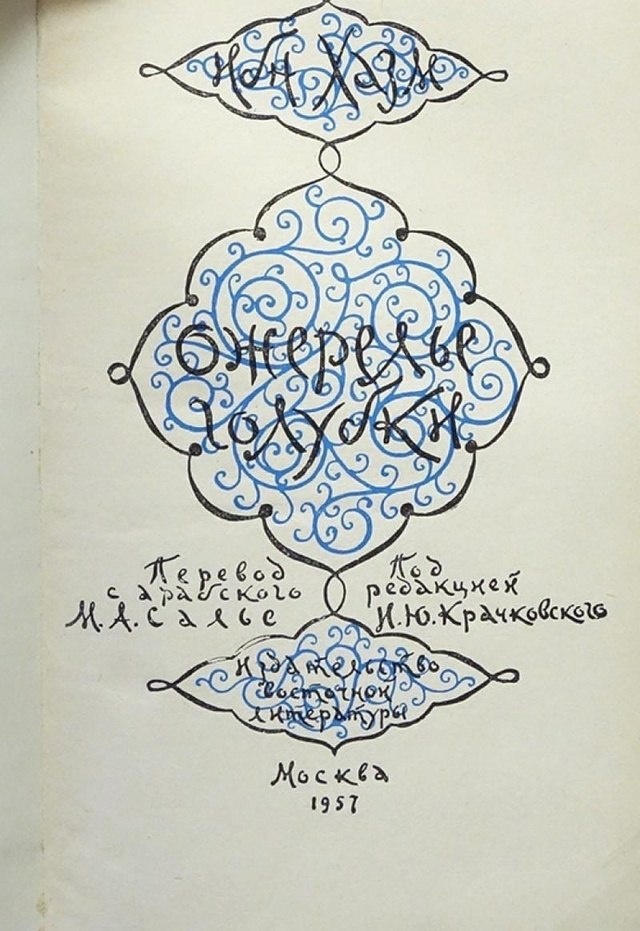 Ибн Хазм
Ожерелье
голубки
Перевод
с арабского
М. А. Салье
Под
редакцией
И. Ю. Крачковского
Издательство
восточной
литературы
Москва
1957